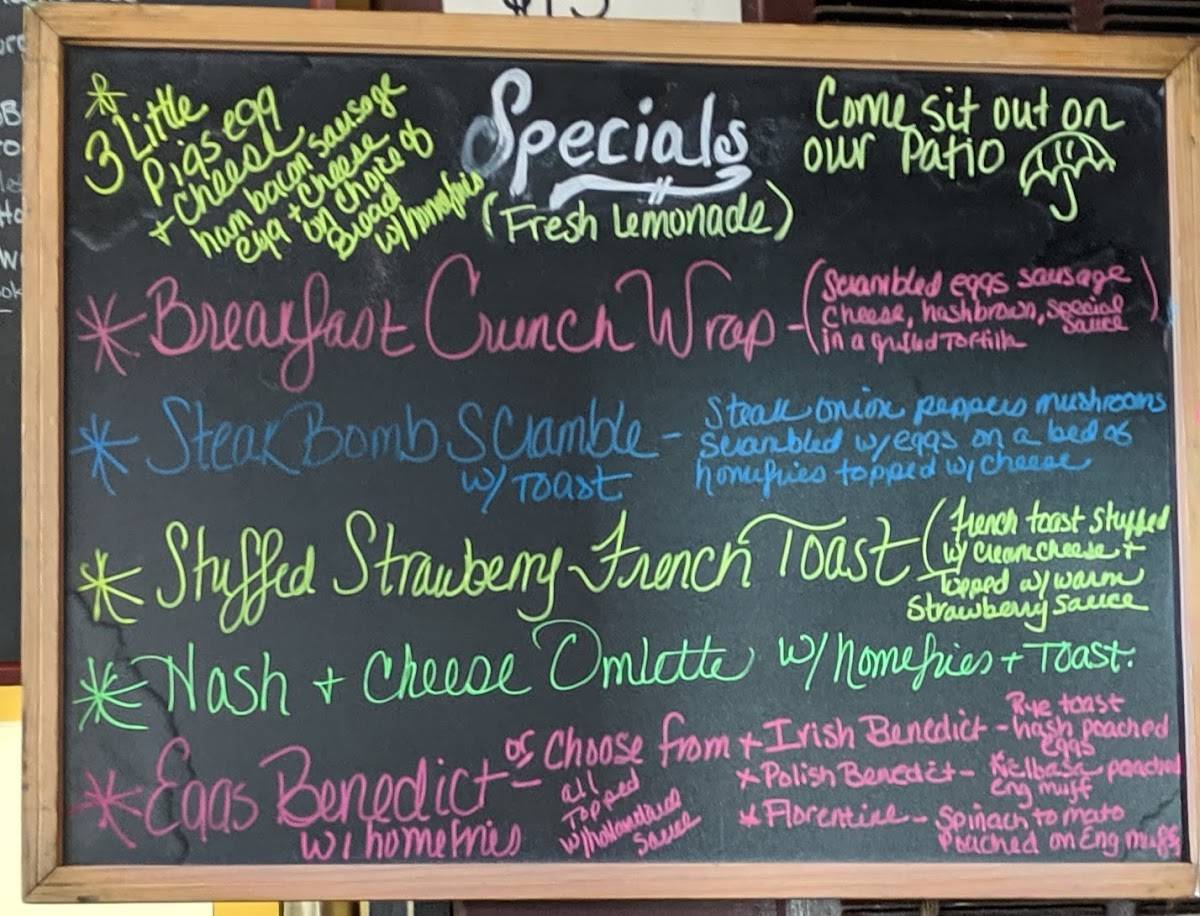 $13
Specials
(Fresh Lemonade)
Come sit out on
our Patio
* 3 Little
Pigs egg
+ cheese
ham bacon sausage
egg + cheese
on choice of
Bread
w/ homefries
* Breakfast Crunch Wrap - (Scrambled eggs sausage
cheese, hashbrown, special
sauce
in a grilled Tortilla)
* Steak Bomb Scramble - Steak onion peppers mushrooms
w/ Toast
scrambled w/ eggs on a bed of
homefries topped w/ cheese
* Stuffed Strawberry French Toast (french toast stuffed
w/ cream cheese +
Topped w/ warm
Strawberry Sauce
* Hash + Cheese Omlette w/ homefries + Toast.
* Eggs Benedict - or Choose from
w/ homefries
all
Topped
w/
Sauce
+ Irish Benedict - Rye toast
hash poached
eggs
* Polish Benedict - Kielbasa poached
Eng muff
* Florentine - Spinach tomato
Poached on Eng muffs